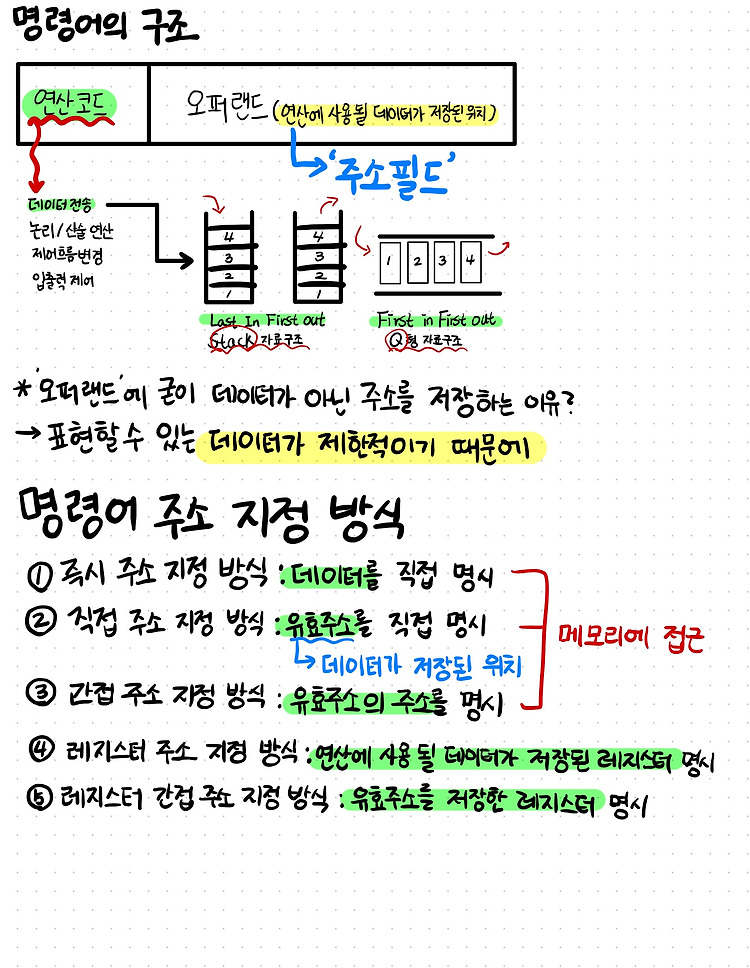 명령어의 구조
연산코드
오퍼랜드 (연산에 사용될 데이터가 저장된 위치)
'주소필드'
데이터 전송
논리/산술 연산
제어흐름변경
입출력 제어
4
3
2
1
4
3
2
1
1 2 3 4
Last In First out
Stack 자료구조
First in First out
Q형 자료구조
*'오퍼랜드'에 굳이 데이터가 아닌 주소를 저장하는 이유?
→ 표현할 수 있는 데이터가 제한적이기 때문에
명령어 주소 지정 방식
① 즉시 주소 지정 방식 : 데이터를 직접 명시
② 직접 주소 지정 방식 : 유효주소를 직접 명시
데이터가 저장된 위치
메모리에 접근
③ 간접 주소 지정 방식 : 유효주소의 주소를 명시
④ 레지스터 주소 지정 방식 : 연산에 사용 될 데이터가 저장된 레지스터 명시
⑤ 레지스터 간접 주소 지정 방식 : 유효주소를 저장한 레지스터 명시